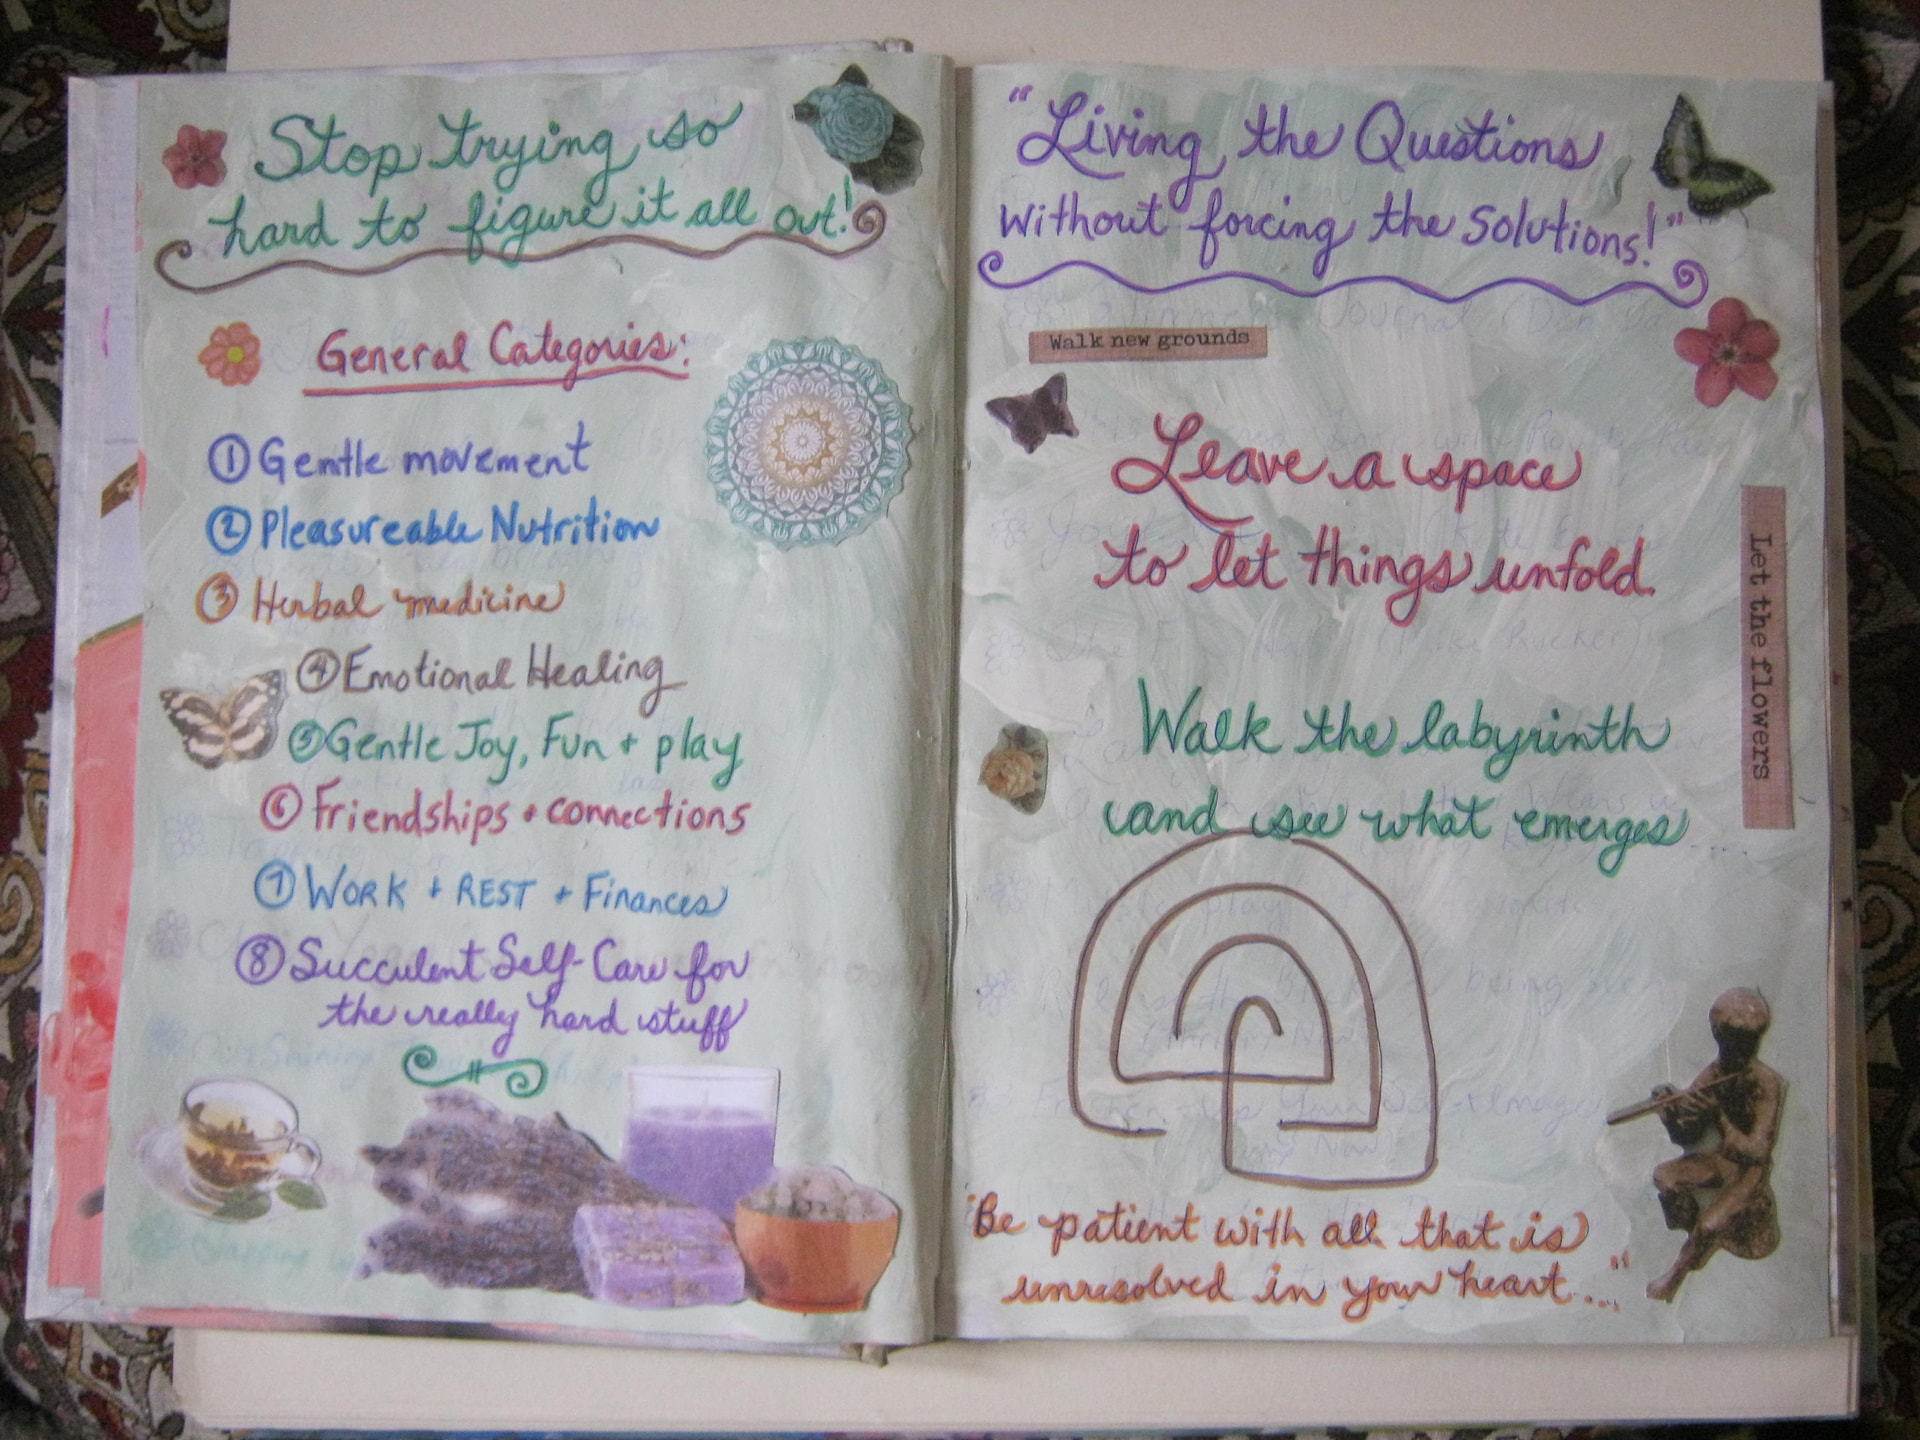 Stop trying so
hard to figure it all out!
General Categories:
① Gentle movement
② Pleasureable Nutrition
③ Herbal medicine
④ Emotional Healing
⑤ Gentle Joy, Fun + play
⑥ Friendships + connections
⑦ WORK + REST + Finances
⑧ Succulent Self-Care for
the really hard stuff
"Living the Questions
without forcing the solutions!"
Walk new grounds
Leave a space
to let things unfold.
Let the flowers
Walk the labyrinth
and see what emerges....
"Be patient with all that is
unresolved in your heart..."